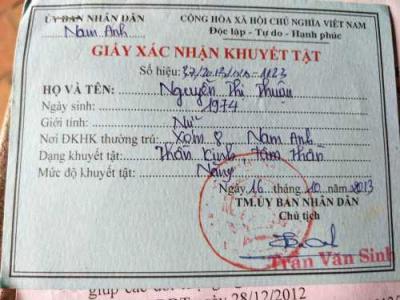 ỦY BAN NHÂN DÂN
Nam Anh
CỘNG HÒA XÃ HỘI CHỦ NGHĨA VIỆT NAM
Độc lập - Tự do - Hạnh phúc
GIẤY XÁC NHẬN KHUYẾT TẬT
Số hiệu:
HỌ VÀ TÊN: Nguyễn Thị Thuận
Ngày sinh: 1974
Giới tính: Nữ
Nơi ĐKHK thường trú: Xóm 8 Nam Anh
Dạng khuyết tật: Thần kinh tâm thần
Mức độ khuyết tật: Nặng
Ngày 16 tháng 10 năm 2013
TM.ỦY BAN NHÂN DÂN
Chủ tịch
Trần Văn Sinh
giúp các đối
ngày 28/12/2012